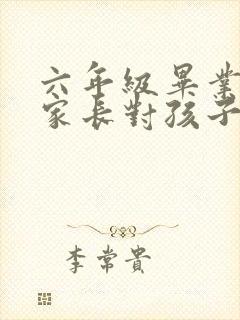 六年級畢業
家長對孩子
李常貴